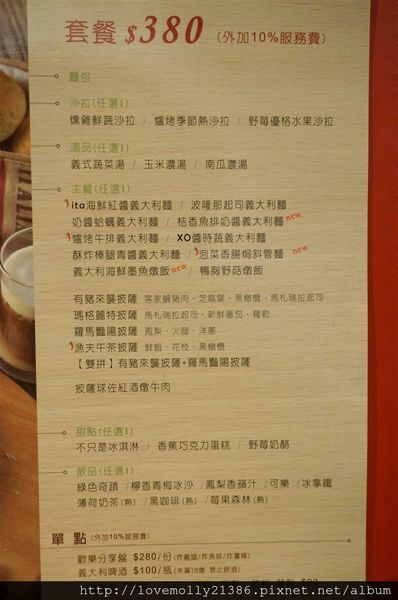 套餐 $380 (外加10%服務費)
麵包
沙拉(任選1)
燻雞鮮蔬沙拉 / 爐烤季節熱沙拉 / 野莓優格水果沙拉
湯品(任選1)
義式蔬菜湯 / 玉米濃湯 / 南瓜濃湯
主餐(任選1)
ita海鮮紅醬義大利麵 / 波隆那起司義大利麵
奶醬蛤蠣義大利麵 / 桔香魚排奶醬義大利麵 new
爐烤牛排義大利麵 / XO醬時蔬義大利麵
酥炸棒腿青醬義大利麵 / 泡菜香腸焗斜管麵 new
義大利海鮮墨魚燉飯 new / 鴨胸野菇燉飯
有豬來襲披薩 客家鹹豬肉、芝麻葉、黑橄欖、馬札瑞拉起司
瑪格麗特披薩 馬札瑞拉起司、新鮮番茄、羅勒
羅馬豔陽披薩 鳳梨、火腿、洋蔥
漁夫午茶披薩 鮮蝦、花枝、黑橄欖
【雙拼】有豬來襲披薩+羅馬豔陽披薩
披薩球佐紅酒燉牛肉
甜點(任選1)
不只是冰淇淋 / 香蕉巧克力蛋糕 / 野莓奶酪
飲品(任選1)
綠色奇蹟 / 檸香青梅冰沙 / 鳳梨香蘋汁 / 可樂 / 冰拿鐵
薄荷奶茶(熱) / 黑咖啡(熱) / 莓果森林(熱)
單點 (外加10%服務費)
歡樂分享盤 $280/份 (炸雞翅/炸魚排/炸薯條)
義大利啤酒 $100/瓶 (未滿18歲 禁止飲酒)
http://lovemolly21386.pixnet.net/album